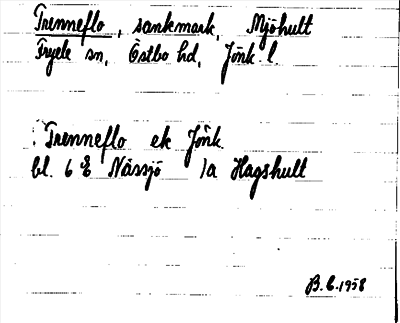 Trenneflo, sankmark, Mjöhult
Fryele sn, Östbo hd, Jönk. l.
Trenneflo ek Jönk
bl. 6 E Nässjö 1a Hagshult
B.E. 1958